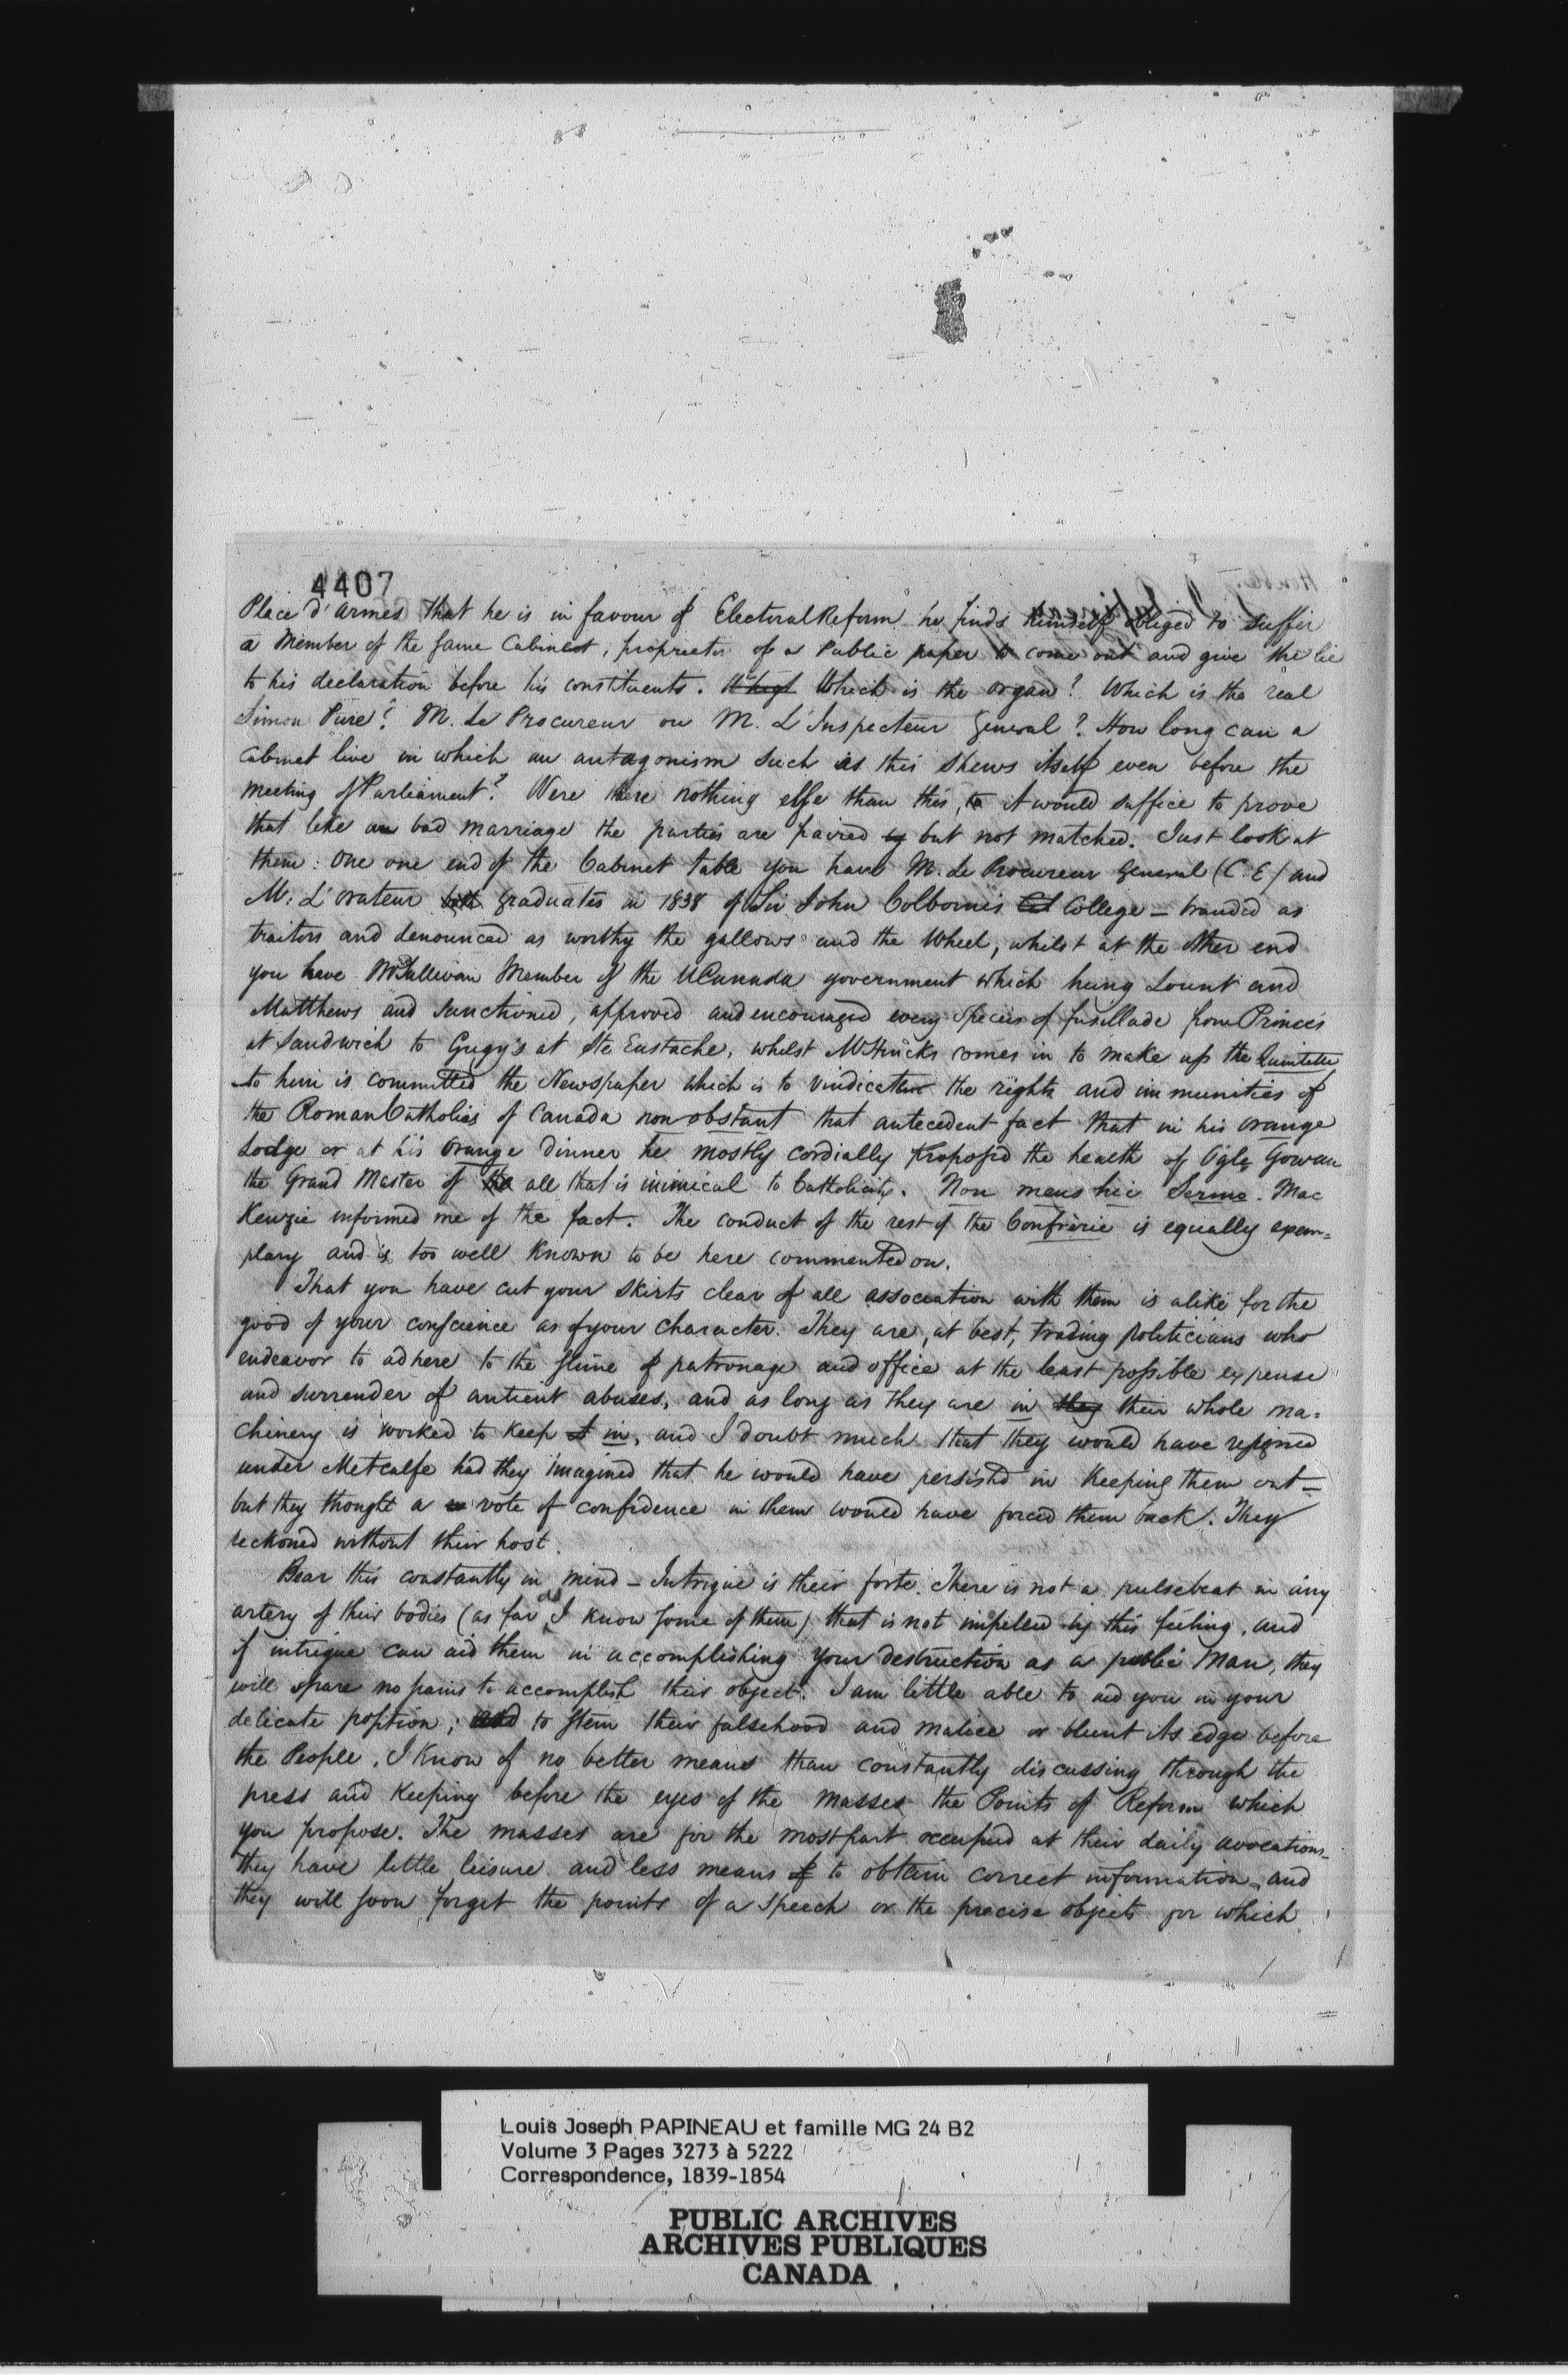 4407
Place d'armes that he is in favour of Electoral Reform he finds himself obliged to suffer
a Member of the same Cabinet, proprietor of a Public paper to come out and give the lie
to his declaration before his constituents. Which is the organ? Which is the real
Simon Pure? M. Le Procureur ou M. L'Inspecteur General? How long can a
Cabinet live in which an antagonism such as this shews itself even before the
meeting of Parliament? Were there nothing else than this, it would suffice to prove
that like a bad marriage the parties are paired but not matched. Just look at
them: One one end of the Cabinet table you have M. Le Procureur General (C.E) and
M. L'orateur both graduates in 1838 of Sir John Colborne's College – branded as
traitors and denounced as worthy the gallows and the Wheel, whilst at the other end
you have Mr Sullivan Member of the U Canada government which hung Lount and
Matthews and sanctioned, approved and encouraged every species of fusillade from Prince's
at Sandwich to Gugy's at Ste Eustache, whilst Mr Hincks comes in to make up the Quintette
to him is committed the Newspaper which is to vindicate the rights and immunities of
the Roman Catholics of Canada non obstant that antecedent fact that in his orange
Lodge or at his orange dinner he mostly cordially proposed the health of Ogle Gowan
the Grand Master of all that is inimical to Catholicity. Non meus hic Sermo. Mac
Kenzie informed me of the fact. The conduct of the rest of the Confrèrie is equally exem=
plary and is too well known to be here commented on.
That you have cut your skirts clear of all association with them is alike for the
good of your conscience as of your character. They are, at best, trading politicians who
endeavor to adhere to the slime of patronage and office at the least possible expense
and surrender of antient abuses, and as long as they are in their whole ma=
chinery is worked to keep in, and I doubt much that they would have resigned
under Metcalfe had they imagined that he would have persisted in keeping them out –
but they thought a vote of confidence in them would have forced them back. They
reckoned without their host.
Bear this constantly in mind – Intrigue is their forte. There is not a pulsebeat in any
artery of their bodies (as far as I know some of them) that is not impelled by this feeling, and
if intrigue can aid them in accomplishing your destruction as a public Man, they
will spare no pains to accomplish their object. I am little able to aid you in your
delicate position; to stem their falsehood and malice or blunt its edge before
the People, I know of no better means than constantly discussing through the
press and keeping before the eyes of the masses the Points of Reform which
you propose. The masses are for the most part occupied at their daily avocations –
they have little leisure and less means to obtain correct information, and
they will soon forget the points of a speech or the precise objects for which
Louis Joseph PAPINEAU et famille MG 24 B2
Volume 3 Pages 3273 à 5222
Correspondence, 1839-1854
PUBLIC ARCHIVES
ARCHIVES PUBLIQUES
CANADA